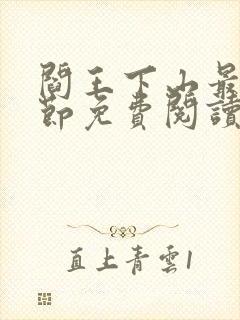 閻王下山最
節免費閱讀
直上青雲1